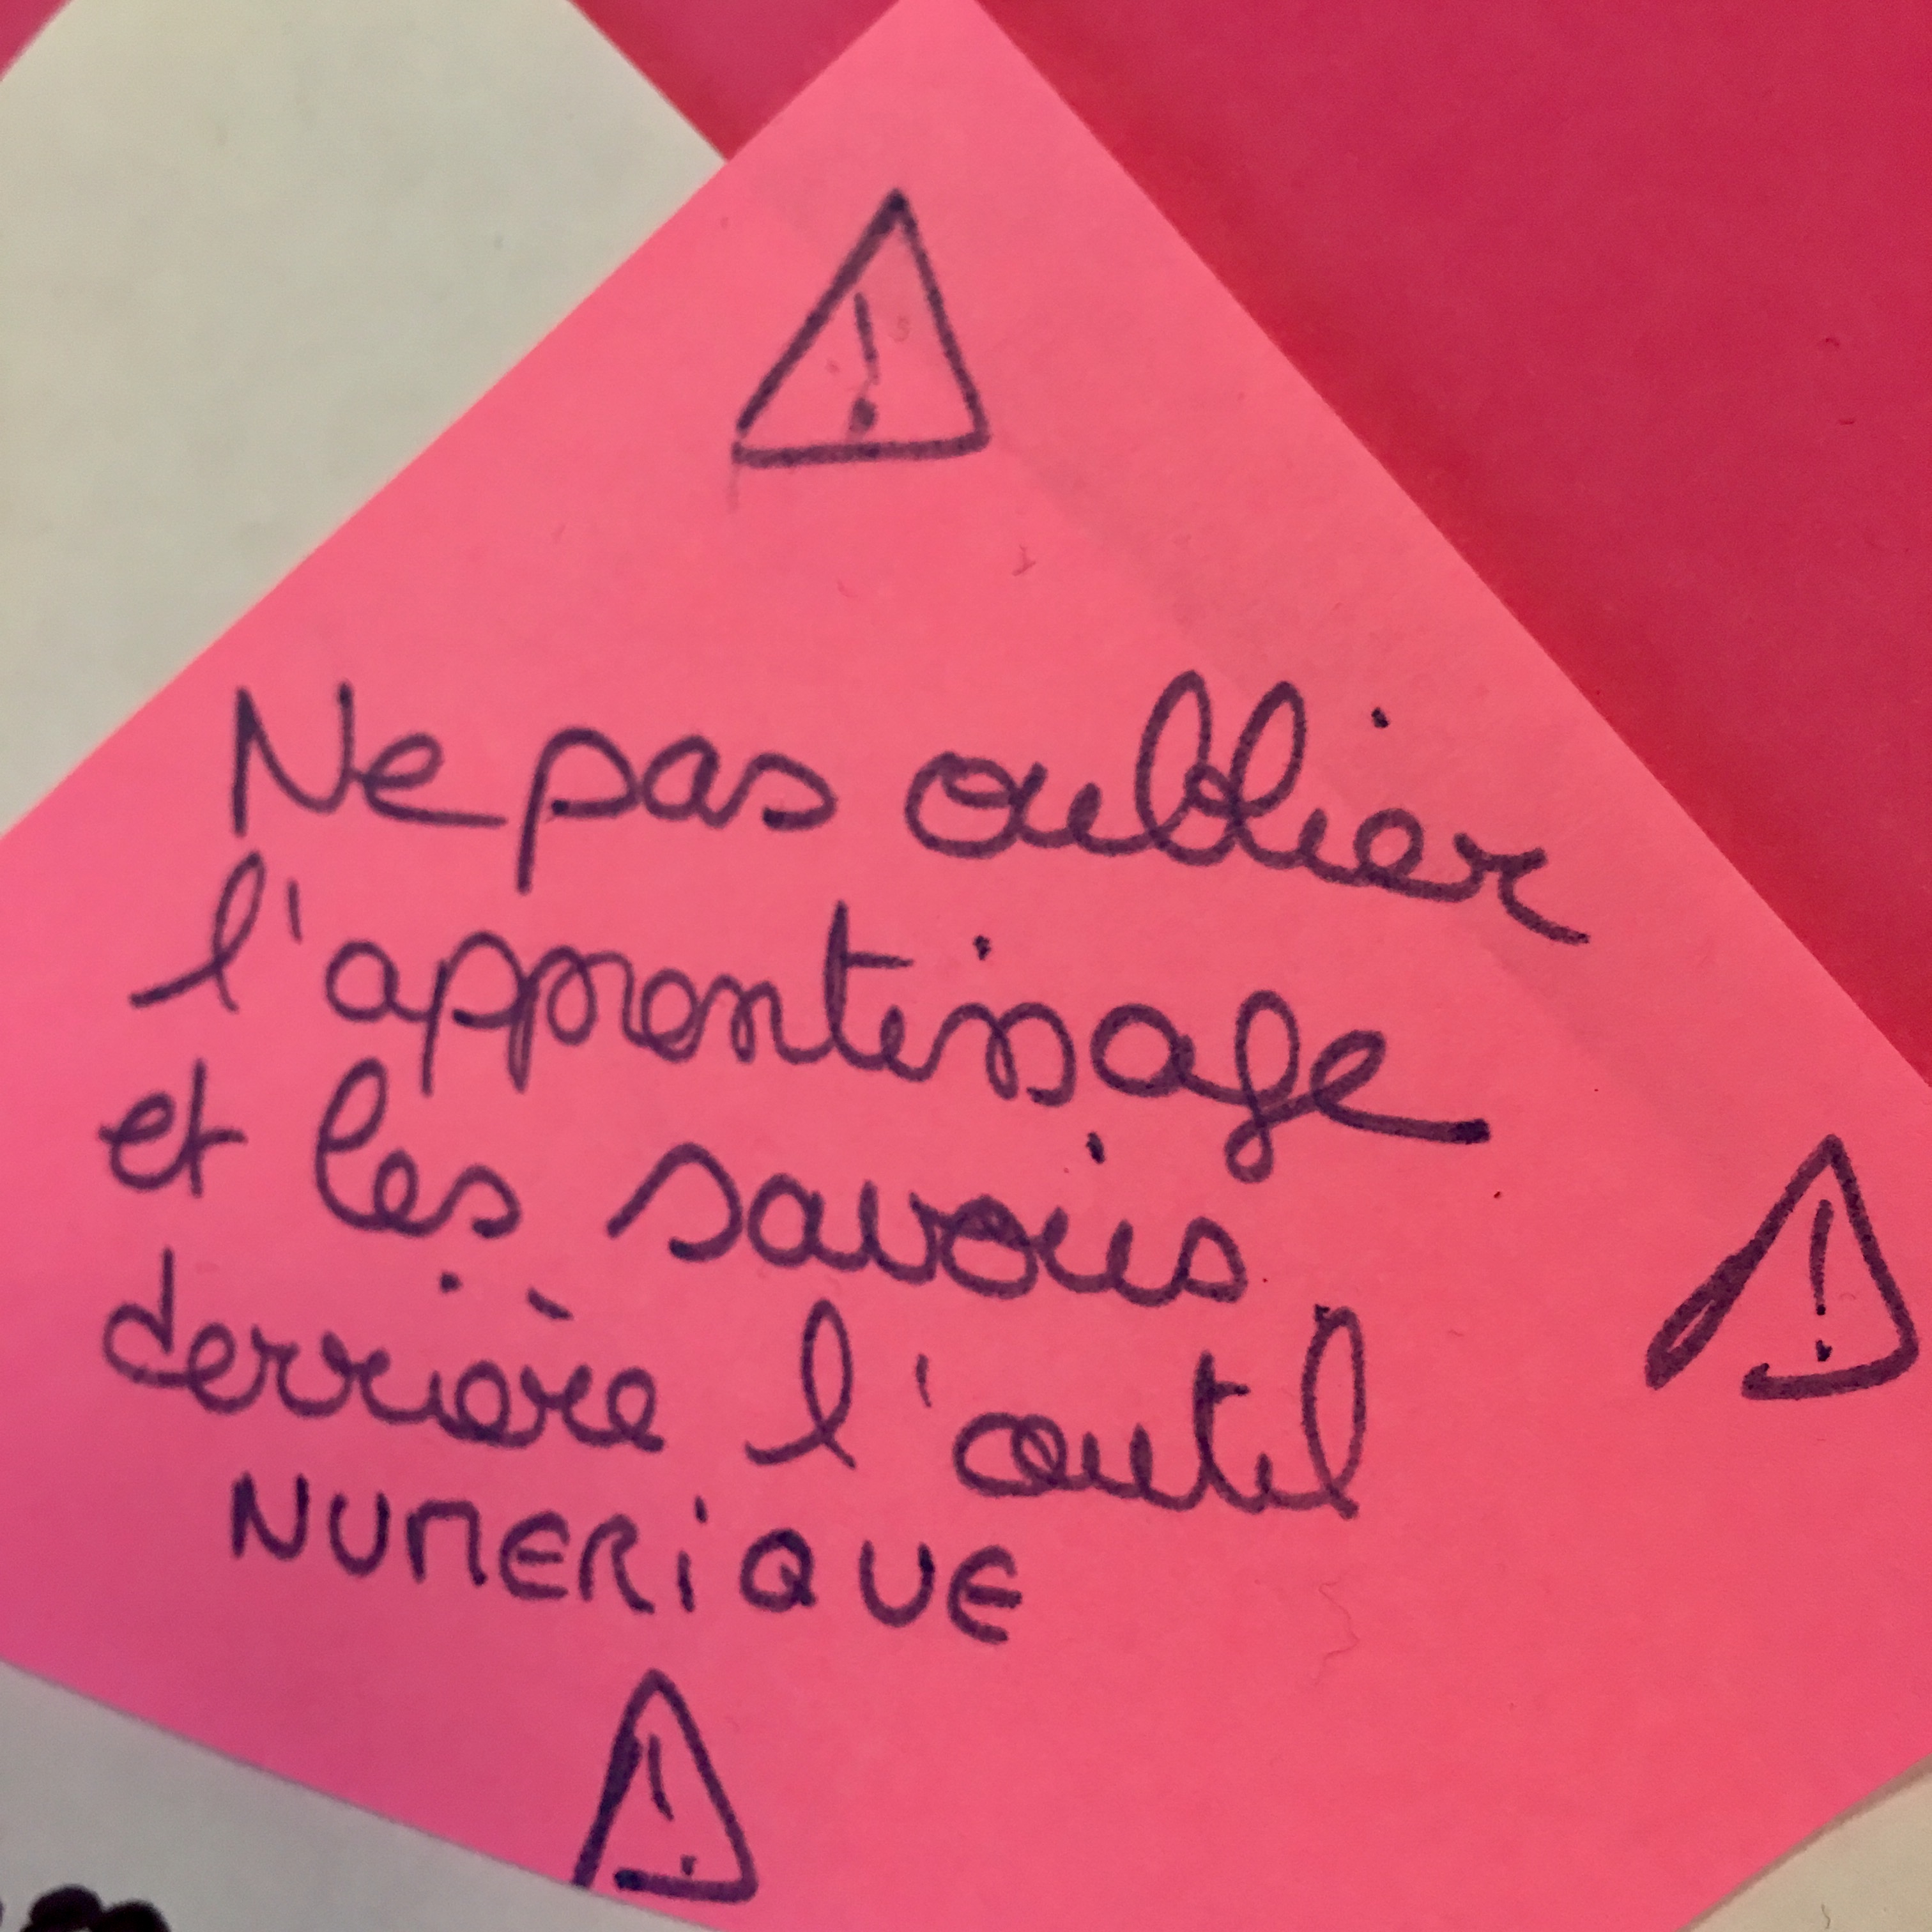 Ne pas oublier
l'apprentissage
et les savoirs
derrière l'outil
NUMERiQUE